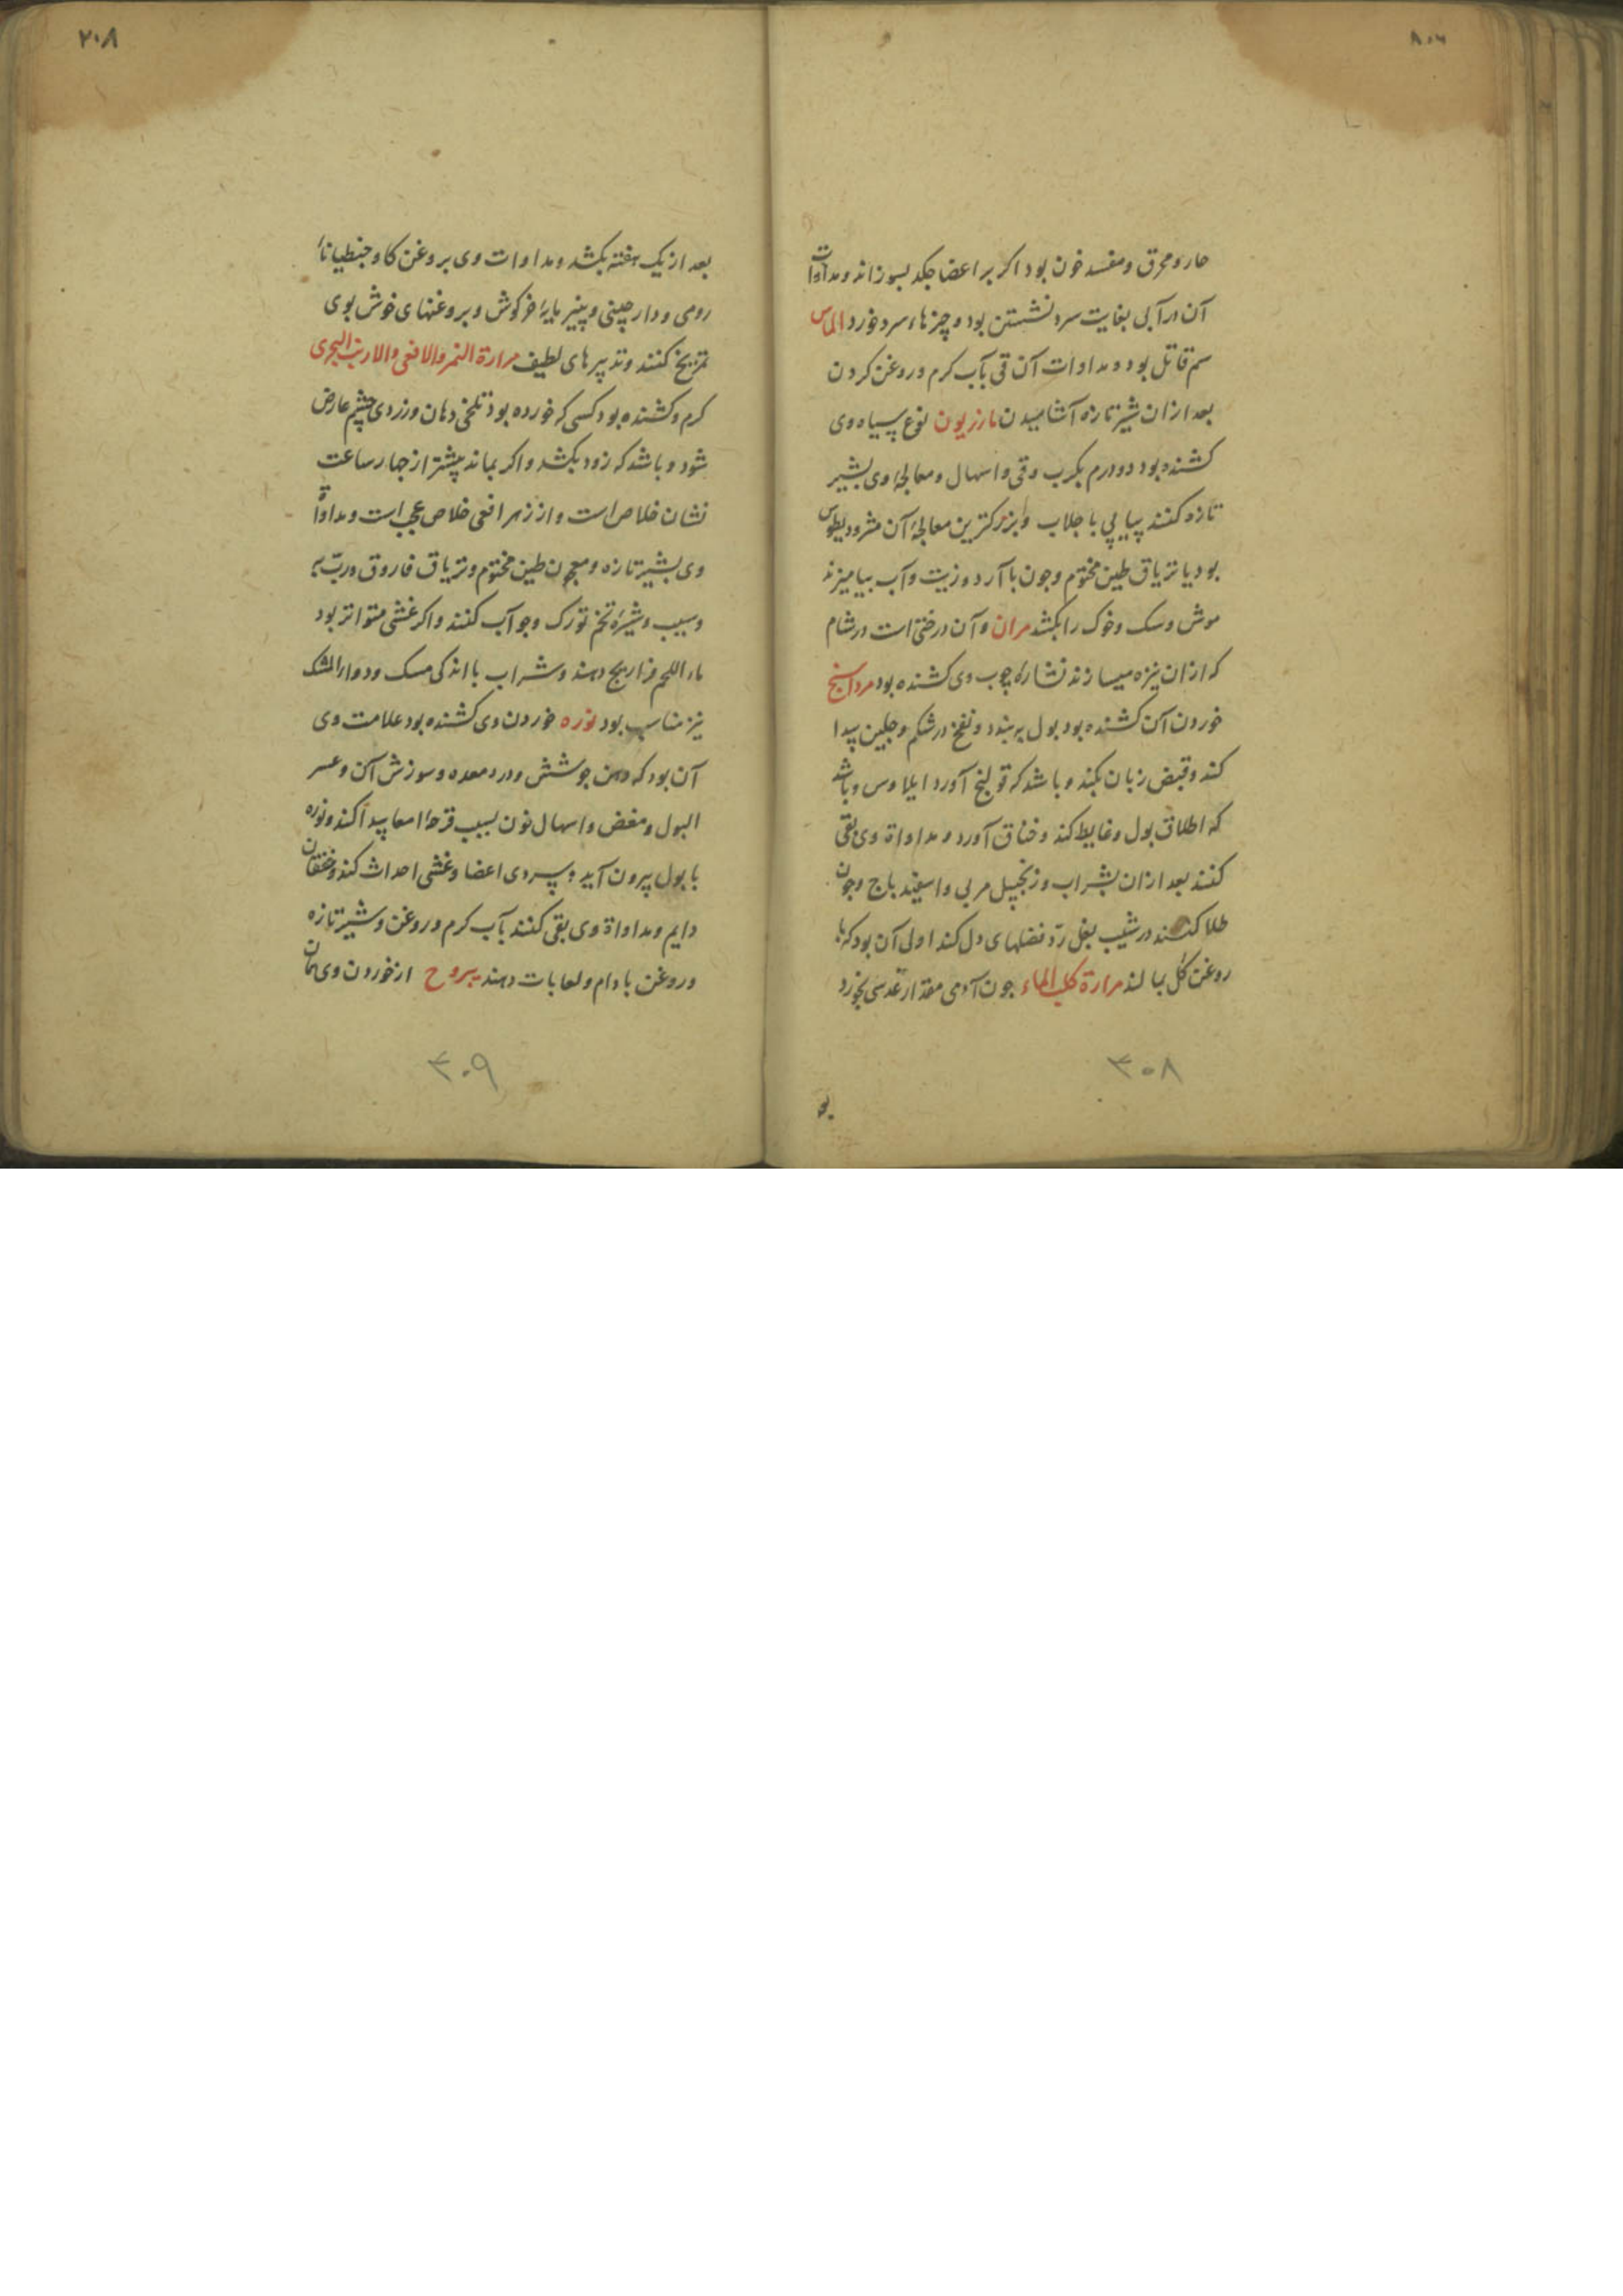 حار و محرق و مفسد خون بود اکر بر اعضا چکد بسوزاند و مداوات
آن در آبی بغایت سرد نشستن بود و چیزهاء سرد خورد الماس
سم قاتل بود و مداوات آن قی بآب کرم و روغن کردن
بعد ازان شیر تازه آشامیدن مازریون نوع سیاه وی
کشنده بود دو درم بکرب و قی و اسهال و معالجهٔ وی بشیر
تازه کنند پیاپی با جلاب و بزرکترین معالجهٔ آن مثرودیطوس
بود یا تریاق طین مختوم و جون با آرد و زیت و آب بیامیزند
موش و سک و خوک را بکشد مران و آن درختی است در شام
که ازان نیزه میسازند نشارهٔ چوب وی کشنده بود مرداسنج
خوردن آن کشنده بود بول ببندد و نفخ در شکم و جلین پیدا
کند و قبض زبان بکند و باشد که قولنج آورد ایلاوس و باشد
که اطلاق بول و غایط کند و خناق آورد و مداواة وی بقی
کنند بعد ازان بشراب و زنجبیل مربی و اسفیدباج و جون
طلا کنند در شیب بغل رد فضلهای دل کند اولی آن بود که با
روغن کل بمالند مرارة کلب الماء جون آدمی مقدار عدسی بخورد
۳۰۸
بعد از یک هفته بکشد و مداوات وی بروغن کاو و جنطیاناء
رومی و دارچینی و پنیر مایهٔ خرکوش و بروغنهای خوش بوی
تمریخ کنند و تدبیرهای لطیف مرارة النمر و الافعی و الارنب البحری
کرم و کشنده بود کسی که خورده بود تلخی دهان و زردی چشم عارض
شود و باشد که زود بکشد و اکر بماند پیشتر از جهار ساعت
نشان خلاص است و از زهر افعی خلاص عجب است و مداواة
وی بشیر تازه و معجون طین مختوم و تریاق فاروق و رب به
و سیب و شیرهٔ تخم تورک و جو آب کنند و اکر غشی متواتر بود
ماء اللحم فراریج دهند و شراب با اندکی مسک و دواء المسک
نیز مناسب بود نوره خوردن وی کشنده بود علامت وی
آن بود که دهن جوشش و درد معده و سوزش آن و عسر
البول و مغص و اسهال خون بسبب قرحهٔ امعا پیدا کند و نوره
با بول بیرون آید و سردی اعضا و غشی احداث کند و خفقان
دایم و مداواة وی بقی کنند بآب کرم و روغن و شیر تازه
و روغن بادام و لعابات دهند یبروح از خوردن وی همان
۳۰۹
۲۰۸